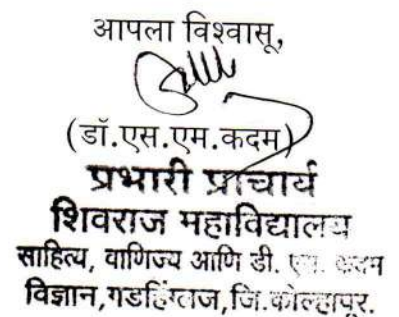 आपला विश्वासू,
(डॉ.एस.एम.कदम)
प्रभारी प्राचार्य
शिवराज महाविद्यालय
साहित्य, वाणिज्य आणि डी. एम. कदम
विज्ञान,गडहिंग्लज,जि.कोल्हापूर.